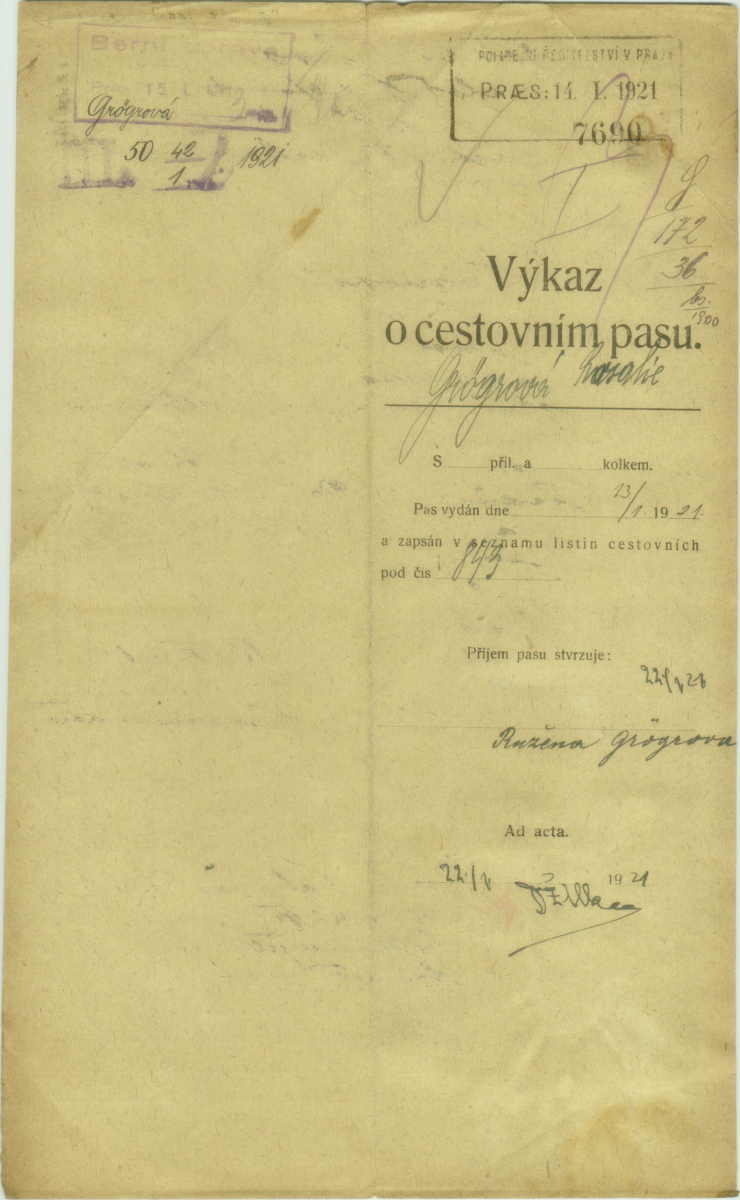 Berní
15. I.
Grögrová
50 42 1921
1
POLICEJNÍ ŘEDITELSTVÍ V PRAZE
PRÆS: 14. I. 1921
7690
I
G
172
36
1900
Výkaz
o cestovním pasu.
Grögrová Rosalie
S příl. a kolkem.
Pas vydán dne 13/1. 1921.
a zapsán v seznamu listin cestovních
pod čís 843
Příjem pasu stvrzuje:
22/1 21
Ružena Grögrova
Ad acta.
22/1 1921